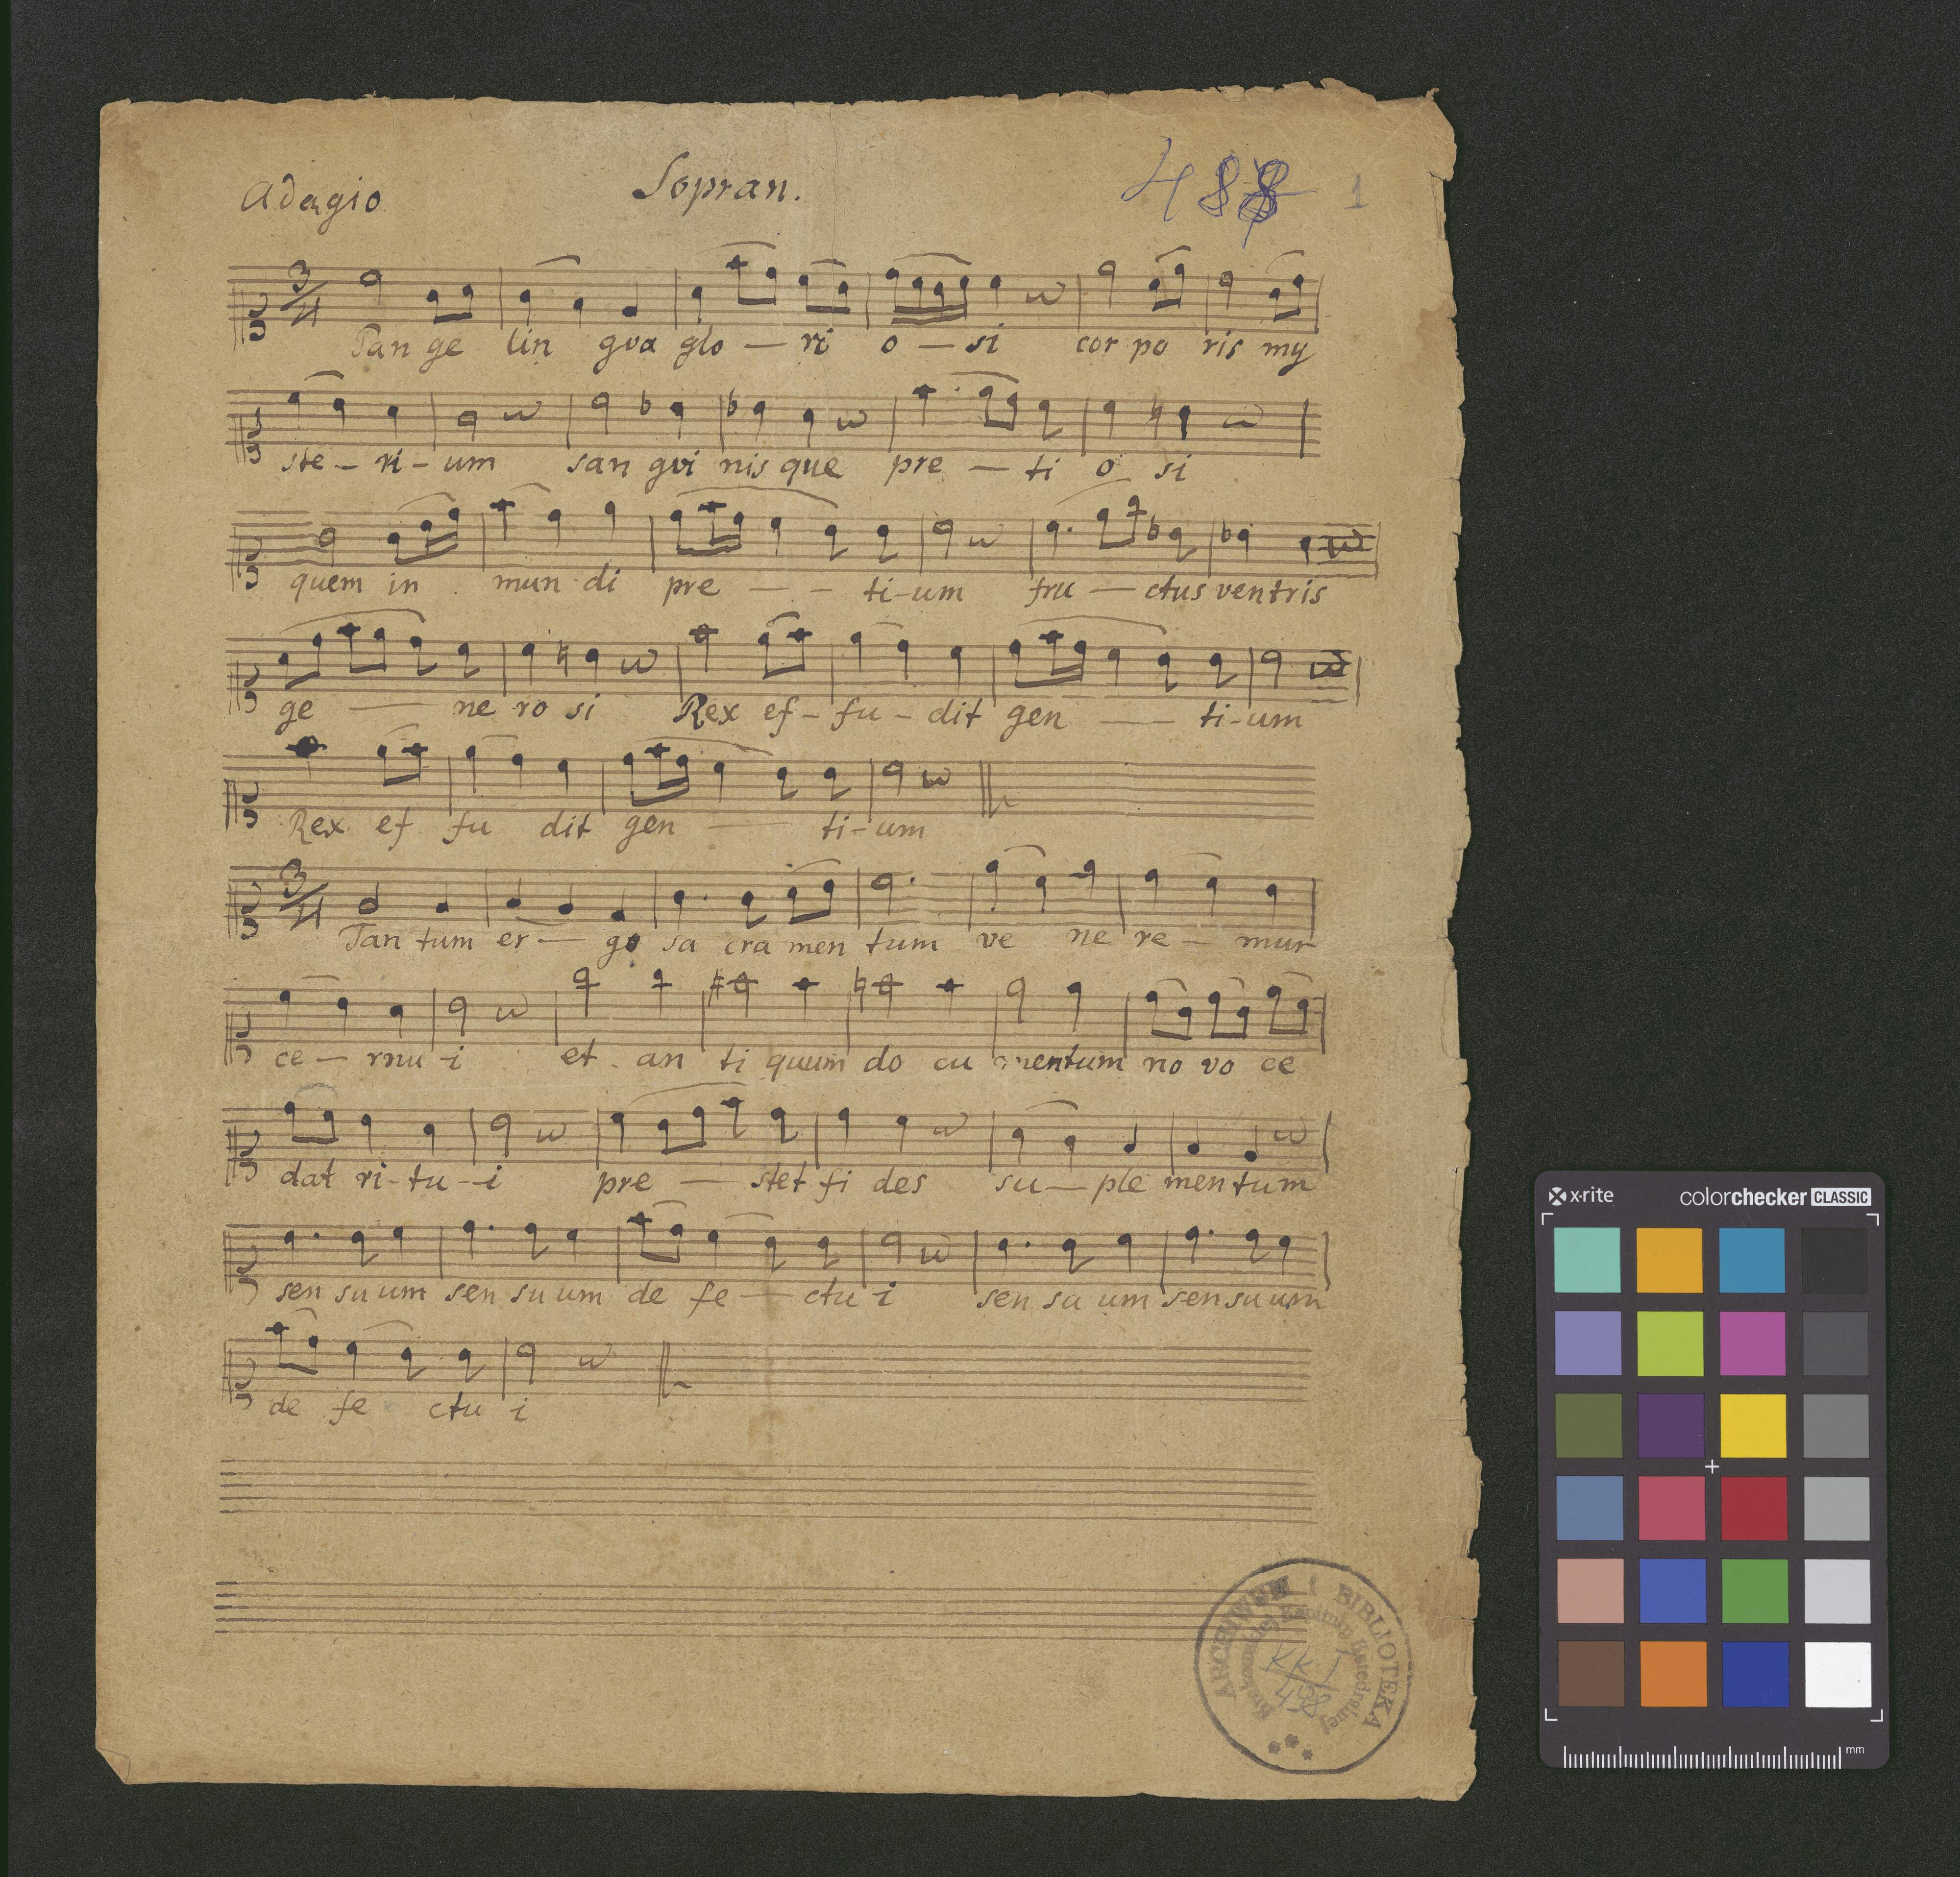 Adagio Sopran. 488 1
3/4
Pan ge lin gva glo — ri o — si cor po ris my
ste – ri – um san gvi nis que pre — ti o si
quem in mun di pre — – ti–um fru — ctus ventris
ge — ne ro si Rex ef – fu – dit gen — ti–um
Rex ef fu dit gen — ti–um
3/4
Tan tum er — go sa cra men tum ve ne re – mur
ce – rnu i et an ti quum do cu mentum no vo ce
dat ri–tu–i pre — stet fi des su — ple mentum
sen su um sen su um de fe — ctu i sen su um sen su um
de fe ctu i
ARCHIWUM i BIBLIOTEKA
Krakowskiej Kapituły Katedralnej
KK I
498
x·rite colorchecker CLASSIC
mm